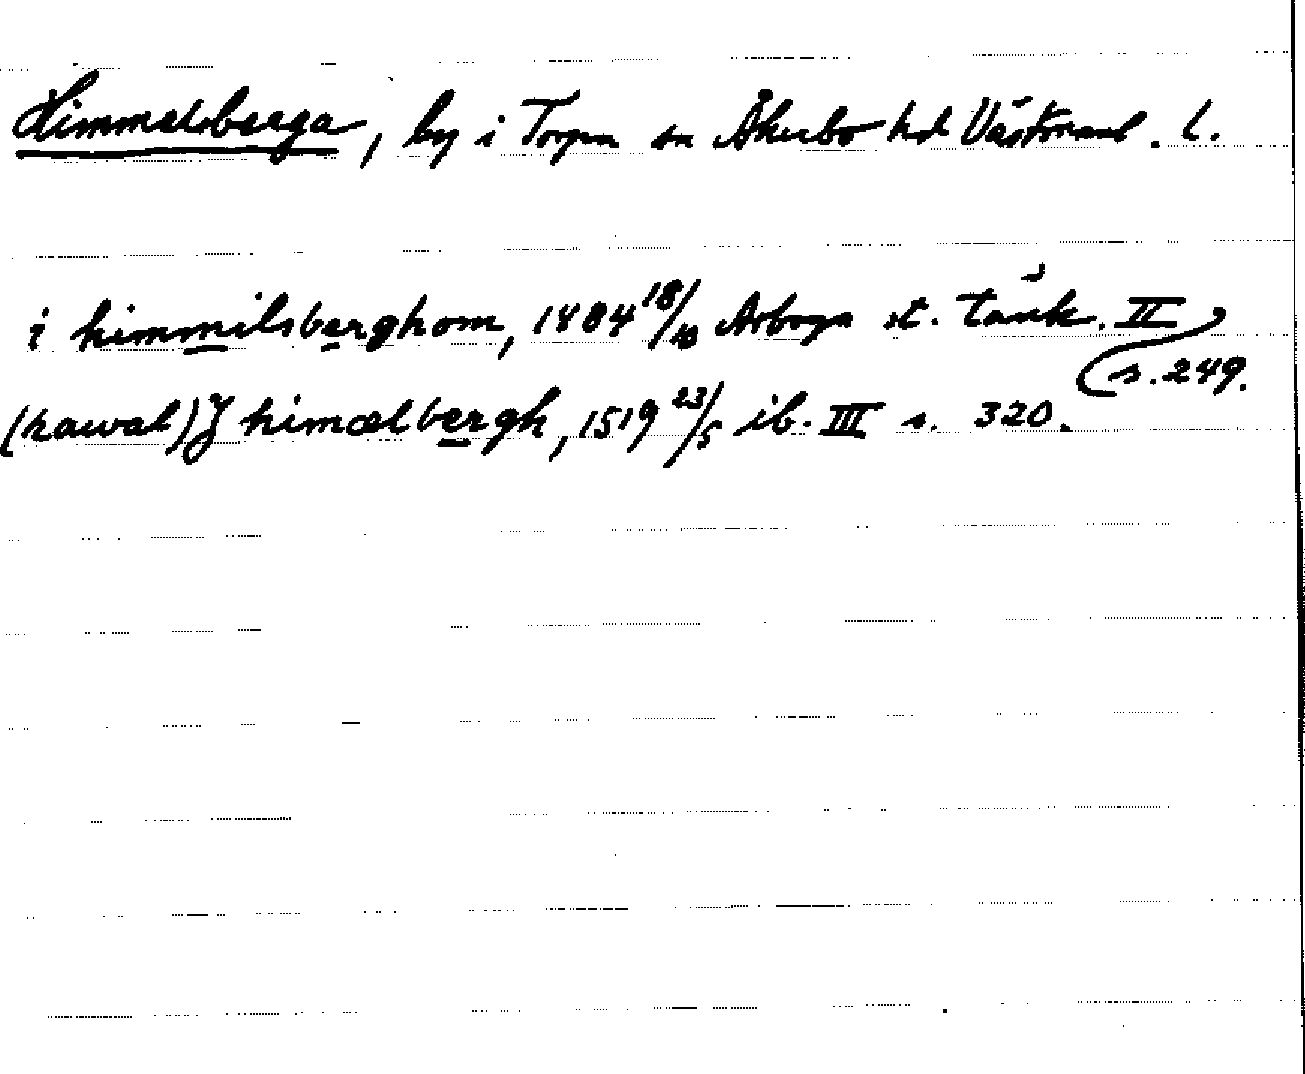 Himmelsberga, by i Torpa sn Åkerbo hd Västmanl. l.
i himmilsberghom, 1484 18/10 Arboga st. tänk. II
s. 249.
(hawal) J himælbergh, 1519 23/5 ib. III s. 320.